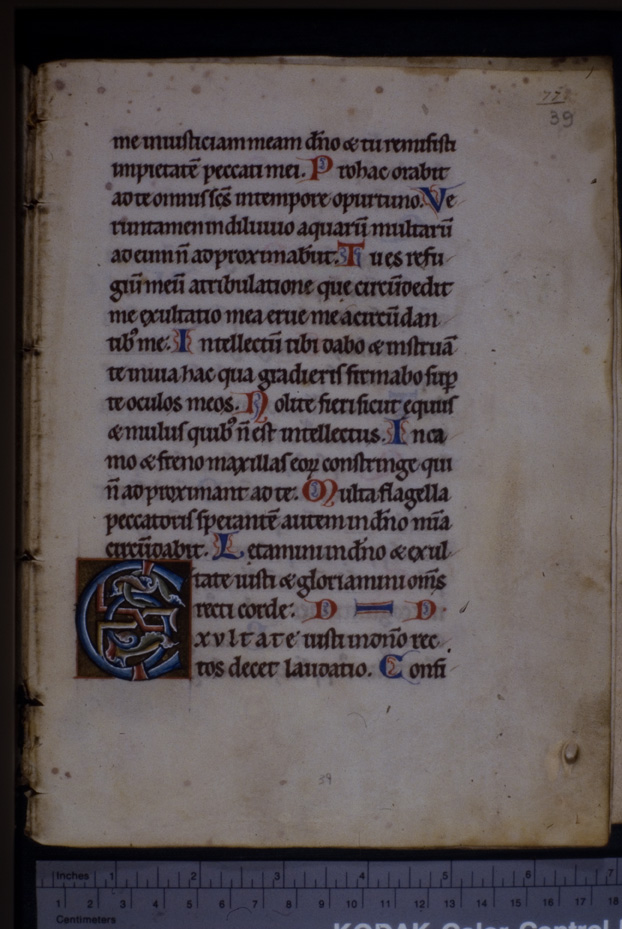 77
39
me iniusticiam meam dño & tu remisisti
impietatē peccati mei. P ro hac orabit
ad te omnis scs̄ in tempore oportuno. Ve
runtamen in diluuio aquarū multarū
ad eum n̄ adproximabunt. T u es refu
giū meū a tribulatione que circūdedit
me exultatio mea erue me a circūdan
tib⁹ me. I ntellectū tibi dabo & instruā
te in uia hac qua gradieris firmabo sup̄
te oculos meos. N olite fieri sicut equus
& mulus quib⁹ n̄ est intellectus. I n ca
mo & freno maxillas eoꝝ constringe qui
n̄ adproximant ad te. M ulta flagella
peccatoris sperantē autem in dño mīa
circūdabit. L etamini in dño & exul
tate iusti & gloriamini om̄s
recti corde. D D
E xvltate iusti in dnō rec
tos decet laudatio. C onfi
39
Inches 1 2 3 4 5 6 7
1 2 3 4 5 6 7 8 9 10 11 12 13 14 15 16 17 18
Centimeters
KODAK Color Control